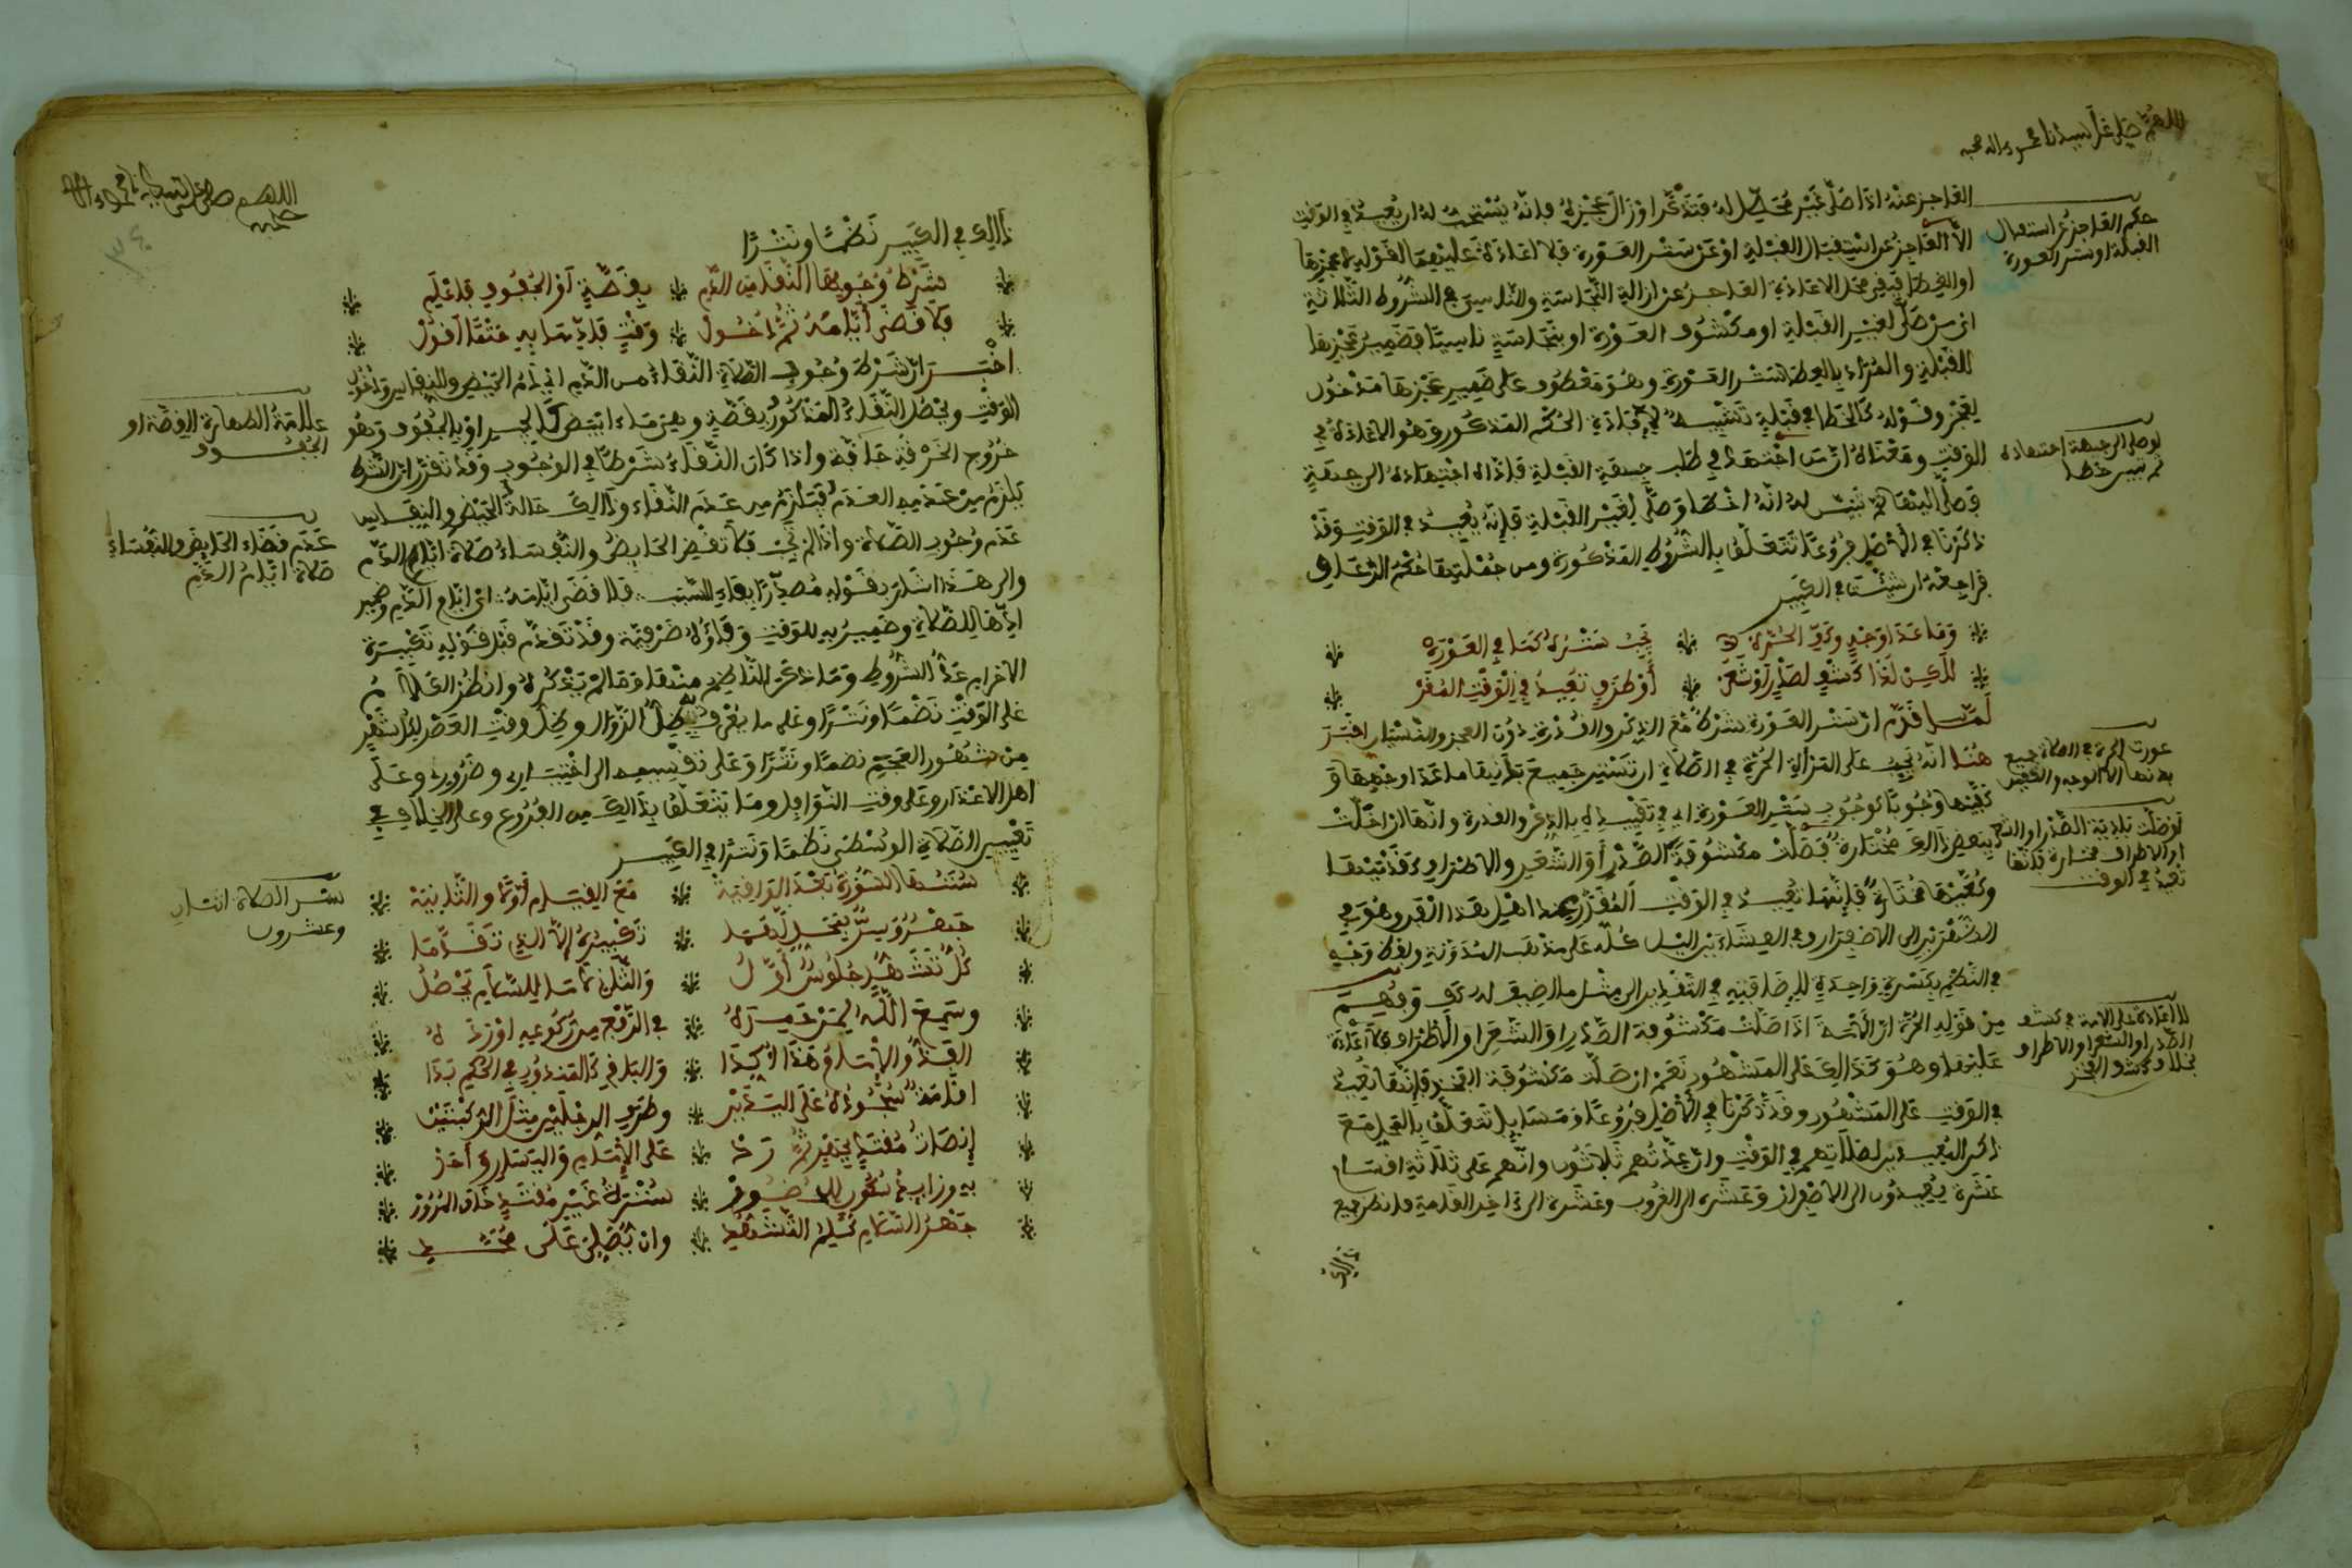 اللهم صل على سيدنا محمد واله وصحبه
العاجز عنه اذا صلى غير محصل له فتذكر او زال عجزه فانه يستحب له ان يعيد في الوقت
الا العاجز عن استقبال القبلة او عن ستر العورة فلا اعادة عليهما لقوله لا عجزها
او الغطا فيفي محل الاعادة العاجز عن ازالة النجاسة والناسي في الشروط الثلاثة
اي من صلى لغير القبلة او مكشوف العورة او بنجاسة ناسيا فضمير عجزها
للقبلة والمراد بالغطا ستر العورة وهو معطوف على ضمير عجزها مدخول
لعجز وقوله كالخطا في قبلة تشبيه لافادة الحكم المذكور وهو الاعادة في
الوقت ومعناه ان من اجتهد في طلب جهة القبلة فاداه اجتهاده الى جهة
فصلى اليها ثم تبين له انه اخطا وصلى لغير القبلة فانه يعيد في الوقت وقد
ذكرنا في الاصل فروعا تتعلق بالشروط المذكورة ومن جملتها حكم الرعاف
فراجعه ان شئت في الكبير
وما عدا وجه وكف الحرة يجب ستره كما في العورة
لكن لدا كشف لصدر او شعر او طرف تعيد في الوقت المقر
لما قدم ان ستر العورة شرط مع الذكر والقدرة دون العجز والنسيان اخبر
هنا انه يجب على المراة الحرة في الصلاة ان تستر جميع بدنها ما عدا وجهها و
كفيها وجوبا كوجوب ستر العورة اي في تقييده بالذكر والقدرة وانها ان اخلت
ببعض ذالك مختارة فصلت مكشوفة الصدر او الشعر والاطراف كقدميها
وكعبيها مختارة فانها تعيد في الوقت المقرر عند اهل هذا الفن وهو في
الظهرين الى الاصفرار وفي العشاءين الليل كله على مذهب المدونة ولفظ وجه
في النظم بكسرة واحدة للاضافته في التقدير الى مثل ما اضيف له كف وفهم
من قوله الحرة ان الامة اذا صلت مكشوفة الصدر او الشعر او الاطراف فلا اعادة
عليها وهو كذالك على المشهور نعم ان صلت مكشوفة الفخذ فانها تعيد
في الوقت على المشهور وقد ذكرنا في الاصل فروعا ومسايل تتعلق بالمحل مع
ذكر المعيدين لصلاتهم في الوقت وان عدتهم ثلاثون وانهم على ثلاثة اقسام
عشرة يعيدون الى الاصفرار وعشرة الى الغروب وعشرة الى اخر القامة فانظر جميع
ذالك
حكم العاجز عن استقبال
القبلة او ستر العورة
لو صلى الى جهة اجتهاده
ثم تبين خطا
عورة الحرة في الصلاة جميع
بدنها الا الوجه والكفين
لو صلت بادية الصدر او الشعر
او الاطراف مختارة فانها
تعيد في الوقت
لا اعادة على الامة في كشف
الصدر او الشعر او الاطراف
بخلاف كشف الفخذ
اللهم صل على سيدنا محمد واله
صحبه
٣٤
ذالك في الكبير نظما ونثرا
شرط وجوبها النقا من الدم بقصة او الجفوف فاعلم
فلا قضى ايامه ثم دخول وقت فادها به حتما اقول
اخبر ان شرط وجوب الصلاة النقاء من الدم اي دم الحيض والنفاس ودخول
الوقت ويحصل النقاء المذكور بقصة وهي ماء ابيض كالجير او بالجفوف وهو
خروج الخرقة جافة واذا كان النقاء شرطا في الوجوب وقد تقرر ان الشرط
يلزم من عدمه العدم فيلزم من عدم النقاء وذالك حالة الحيض والنفاس
عدم وجوب الصلاة واذا لم تجب فلا تقضي الحايض والنفساء صلاة ايام الدم
والى هذا اشار بقوله مصدرا بفاء السبب فلا قضى ايامه اي ايام الدم وضمير
ادها للصلاة وضمير به للوقت وفاؤه ظرفية وقد تقدم قبل قوله تكبيرة
الاحرام عد الشروط وما ذكر الناظم منها وما لم يذكره وانظر الكلام
على الوقت نظما ونثرا وعلى ما يعرف به ظل الزوال وظل وقت العصر لكل شهر
من شهور العجم نظما ونثرا وعلى تقسيمه الى اختياري وضروري وعلى
اهل الاعذار وعلى وقت النوافل وما يتعلق بذالك من الفروع وعلى الخلاف في
تعيين الصلاة الوسطى نظما ونثرا في الكبير
سننها السورة بعد الواقية مع القيام اولا والثانية
جهر وسر بمحل لهما تكبيره الا الذي تقدما
كل تشهد جلوس اول والثاني لا ما للسلام يحصل
وسمع الله لمن حمده في الرفع من ركوعه اورده
الفذ والامام هذا اكدا والباقي كالمندوب في الحكم بدا
اقامة سجوده على اليدين وطرف الرجلين مثل الركبتين
انصات مقتد بجهر ثم رد على الامام واليسار واحد
به وزايد سكون للحضور سترة غير مقتد خاف المرور
جهر السلام كلم التشهد وان يصلي على محمد
علامة الطهارة القصة او
الجفوف
عدم قضاء الحايض والنفساء
صلاة ايام الدم
سنن الصلاة اثنان
وعشرون